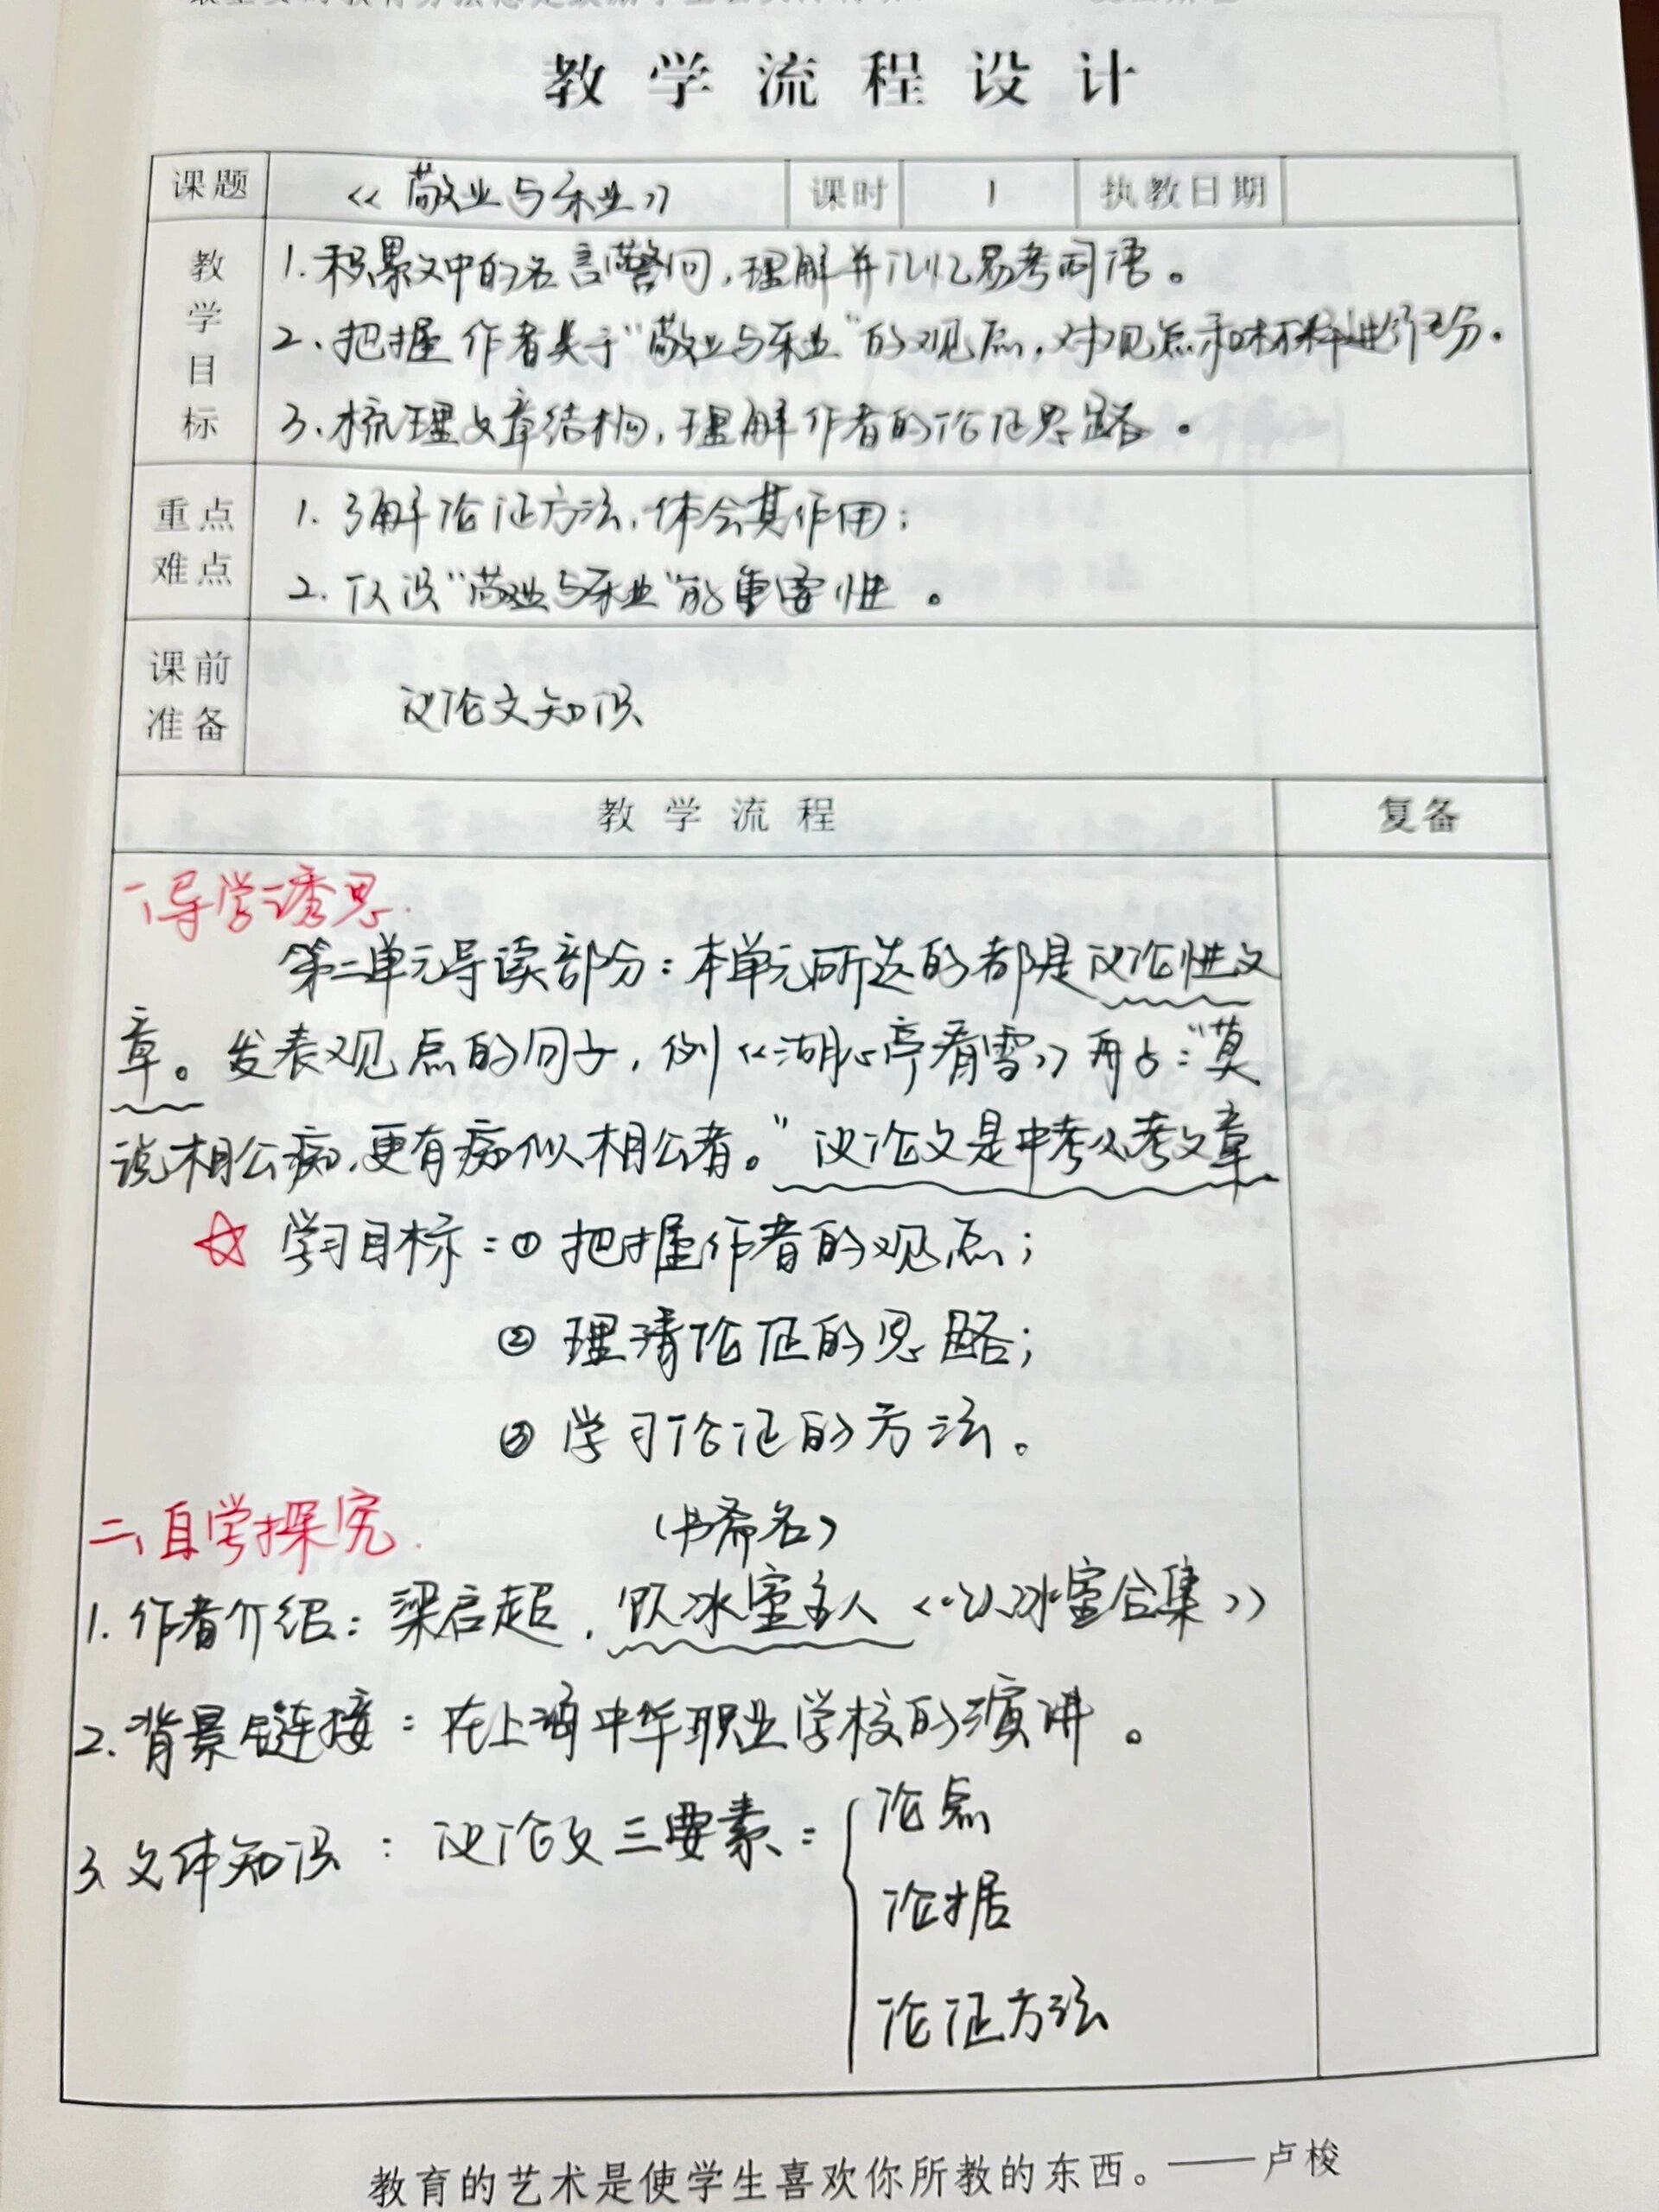 教学流程设计
课题 《敬业与乐业》 课时 1 执教日期
教学目标
1.积累文中的名言警句，理解并记忆易考词语。
2、把握作者关于“敬业与乐业”的观点，对观点和材料进行区分。
3、梳理文章结构，理解作者的论证思路。
重点难点
1.了解论证方法，体会其作用；
2.认识“敬业与乐业”的重要性。
课前准备
议论文知识
教学流程 复备
一、导学诱思.
第二单元导读部分：本单元所选的都是议论性文
章。发表观点的句子，例《湖心亭看雪》舟子：“莫
说相公痴，更有痴似相公者。”议论文是中考必考文章
☆ 学习目标：① 把握作者的观点；
② 理清论证的思路；
③ 学习论证的方法。
二、自学探究.
（书斋名）
1.作者介绍：梁启超，饮冰室主人《饮冰室合集》
2.背景链接：在上海中华职业学校的演讲。
3、文体知识：议论文三要素：
论点
论据
论证方法
教育的艺术是使学生喜欢你所教的东西。——卢梭